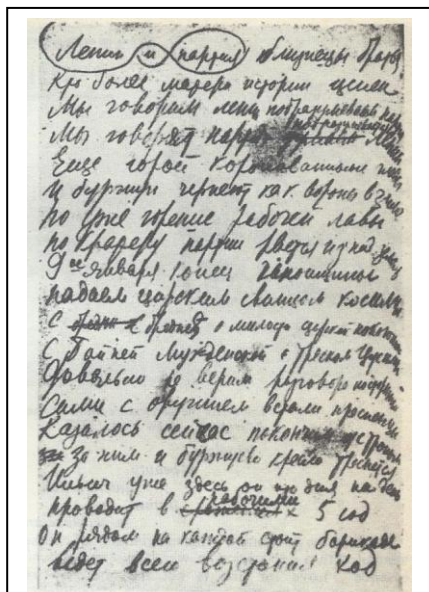 Ленин и партия близнецы братья
Кто более матери истории ценен
Мы говорим Ленин подразумеваем партия
Мы говорят партия подразумеваем Ленин
Еще горой коронованные главы
И буржуи чернеют как вороны в зиме
Но уже горение рабочей лавы
по кратеру партии рвется из под земли
9ое января конец гапонщины
падаем царским свинцом косимы
С бредней о милости царской покончено
С бойней Мукденской с треском Цусимы
Довольно не верим разговорам посторонним
Сами с оружием встали пресненцы
Казалось сейчас покончим с троном
за ним и буржуево кресло треснется
Ильич уже здесь он изо дня на день
проводит с рабочими 5 год
Он рядом на каждой стоит барикаде
ведет всего возстания ход